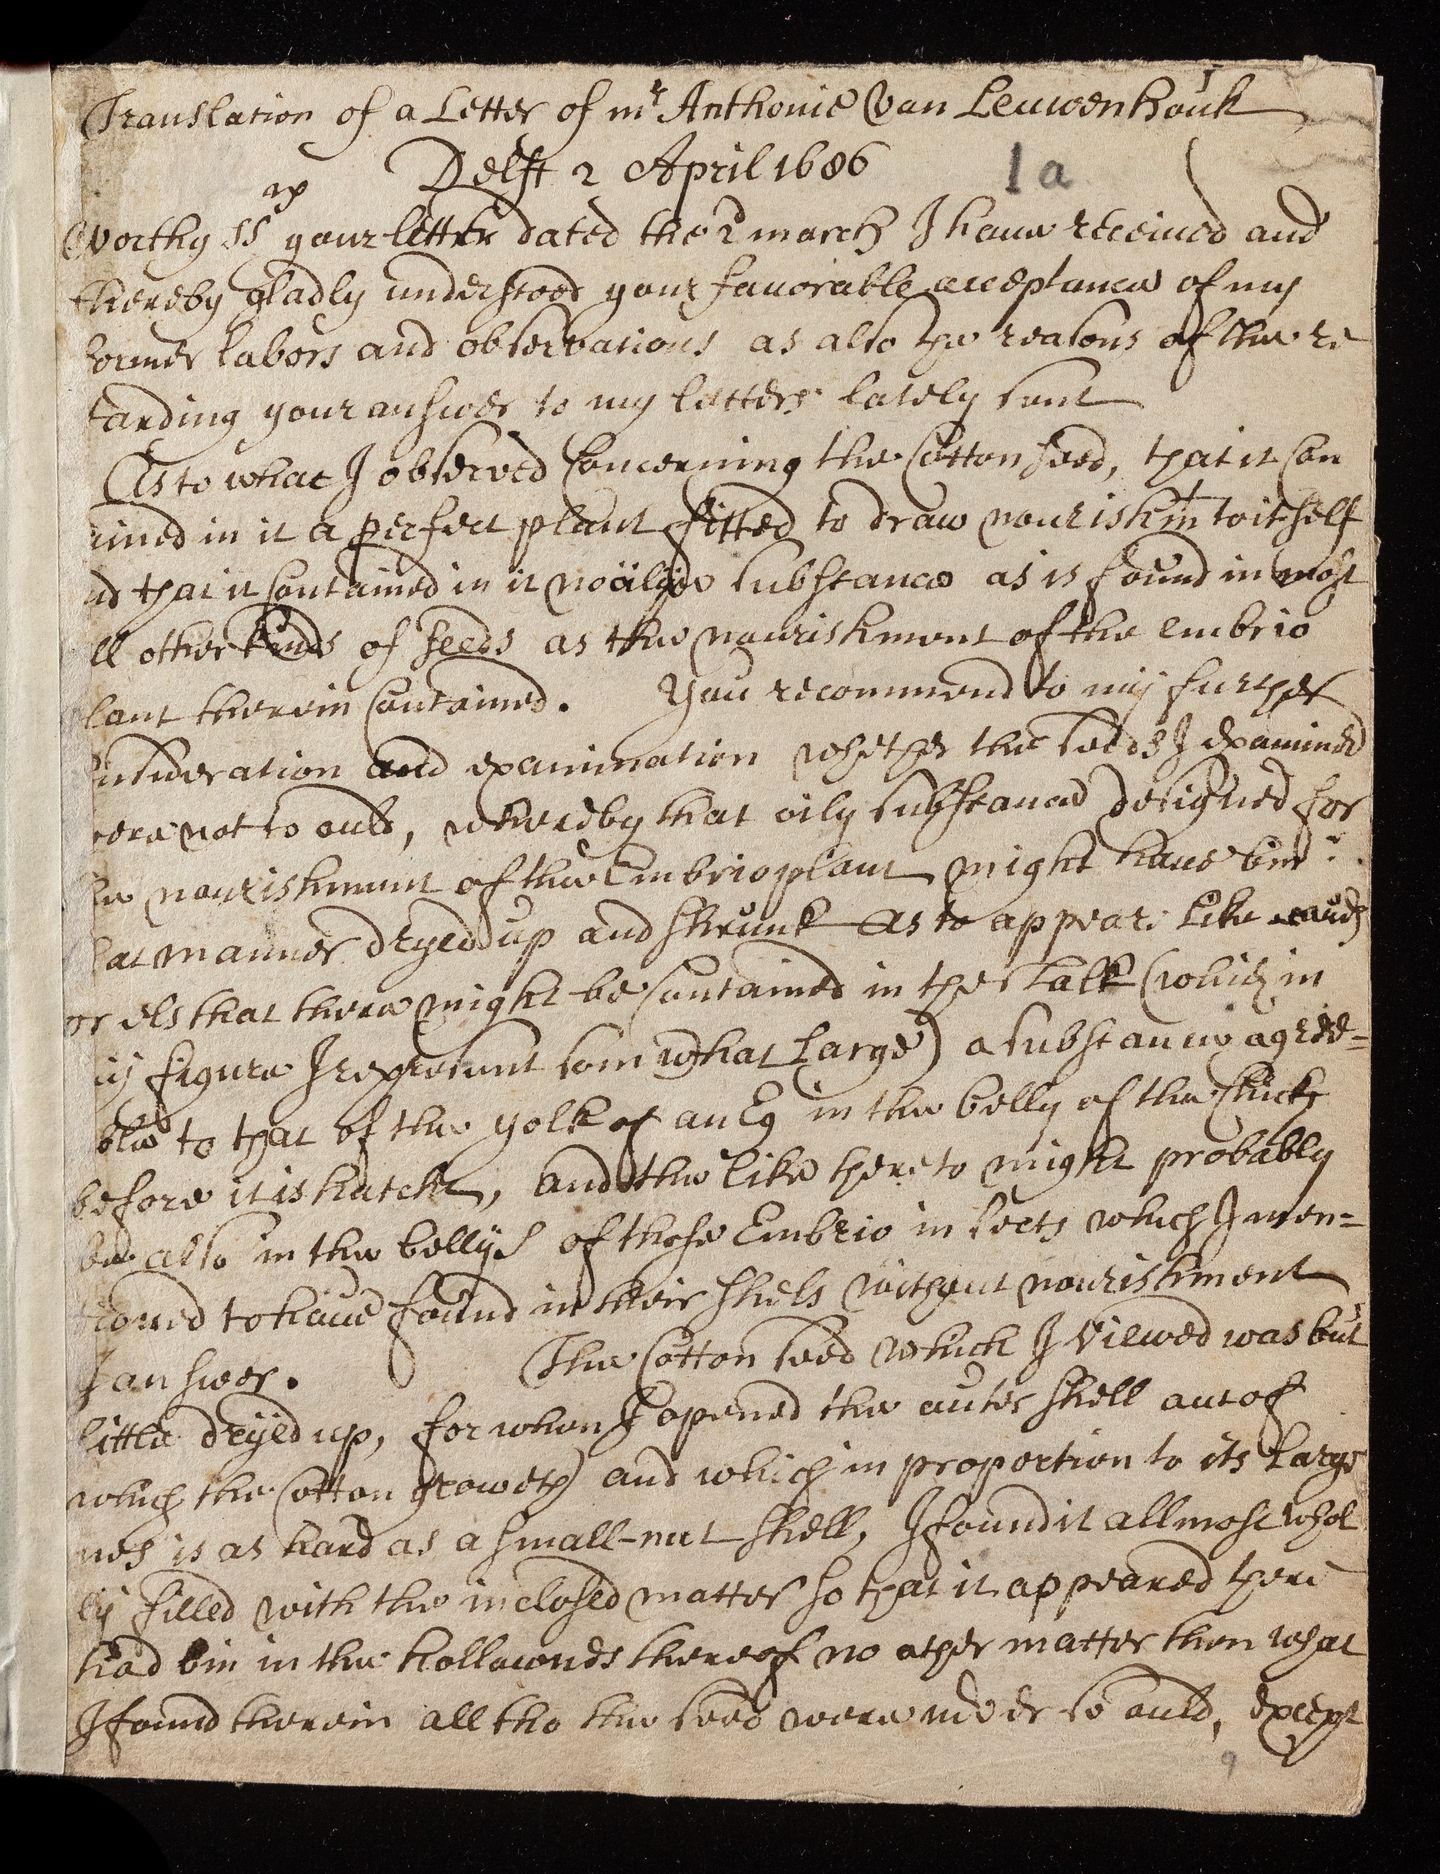 Translation of a Letter of mr Anthonie Van Leuwenhouk
Delft 2 April 1686
1a
Worthy SS your letter dated the 2 march I haue receiued and
thereby gladly understood your fauorable acceptance of my
former labors and observations as also the reasons of the re
tarding your answer to my letters lately sent
As to what I observed Concerning the Cotton seed, that it Con
tined in it a perfect plant fitted to draw nourishmt to it self
nd that it Contained in it no oilye substance as is found in most
ll other kinds of seeds as the nourishment of the embrio
lant therein Contained. You recommend to my further
nsideration and examination whether the seeds I examined
were not to ould, whereby that oily substance designed for
he nourishment of the Embrio plant might haue bin
hat manner dryed up and shrunk as to appear like
or els that there might be Contained in the stalk (which in
my figure I represent som what large) a substance agree=
ble to that of the yolk of an Eg in the belly of the Chick
before it is hatcht, and the like thereto might probably
be also in the bellys of those Embrio insects which I men=
tioned to haue found in their shels without nourishment
I answer. The Cotton seed which I viewed was but
little dryed up, for when I opened the outer shell out of
which the Cotton groweth and which in proportion to its large
nes is as hard as a small-nut shell, I found it allmost whol
ly filled with the inclosed matter so that it appeared there
had bin in the hollownes thereof no other matter then what
I found therein all tho the seed were never so ould, except
9